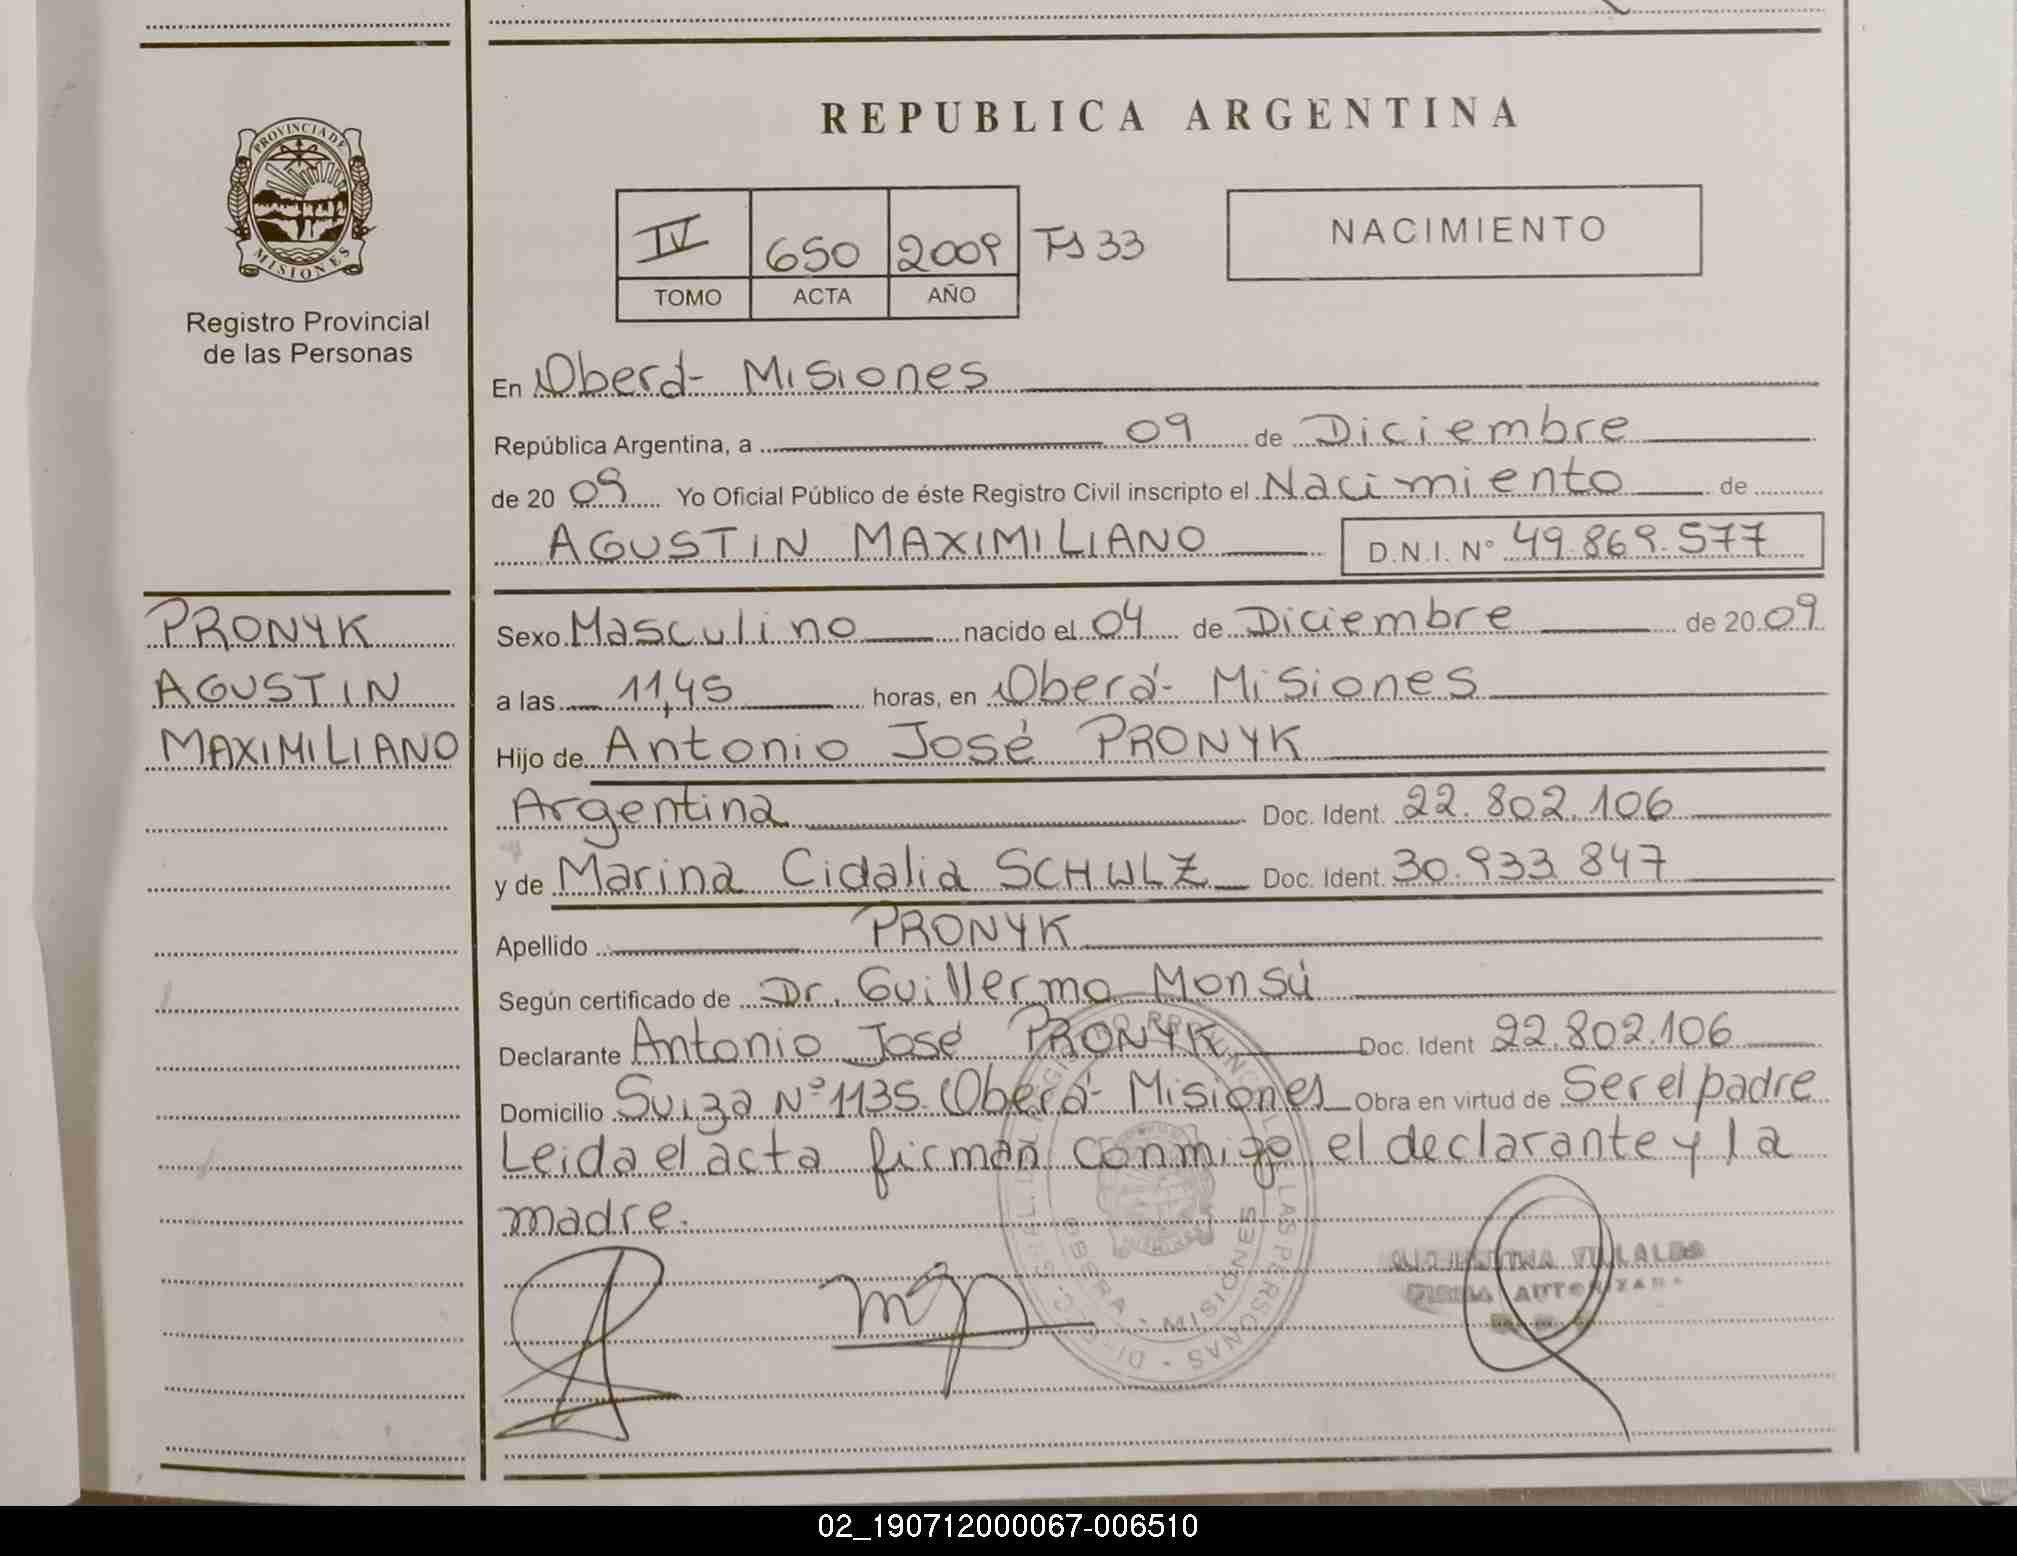 PROVINCIA DE
MISIONES
Registro Provincial
de las Personas
PRONYK
AGUSTIN
MAXIMILIANO
REPUBLICA ARGENTINA
IV 650 2009 Fs 33
TOMO ACTA AÑO
NACIMIENTO
En Oberá- Misiones
República Argentina, a 09 de Diciembre
de 20 09 Yo Oficial Público de éste Registro Civil inscripto el Nacimiento de
AGUSTIN MAXIMILIANO D.N.I. N° 49.869.577
Sexo Masculino nacido el 04 de Diciembre de 20 09
a las 11,45 horas, en Oberá- Misiones
Hijo de Antonio José PRONYK
Argentina Doc. Ident. 22.802.106
y de Marina Cidalia SCHULZ Doc. Ident. 30.933.847
Apellido PRONYK
Según certificado de Dr. Guillermo Monsú
Declarante Antonio José PRONYK Doc. Ident 22.802.106
Domicilio Suiza N° 1135 Oberá- Misiones Obra en virtud de Ser el padre
Leida el acta firman conmigo el declarante y la
madre.
LAS PERSONAS
MISIONES
VILLALBA
FIRMA AUTORIZADA
02_190712000067-006510